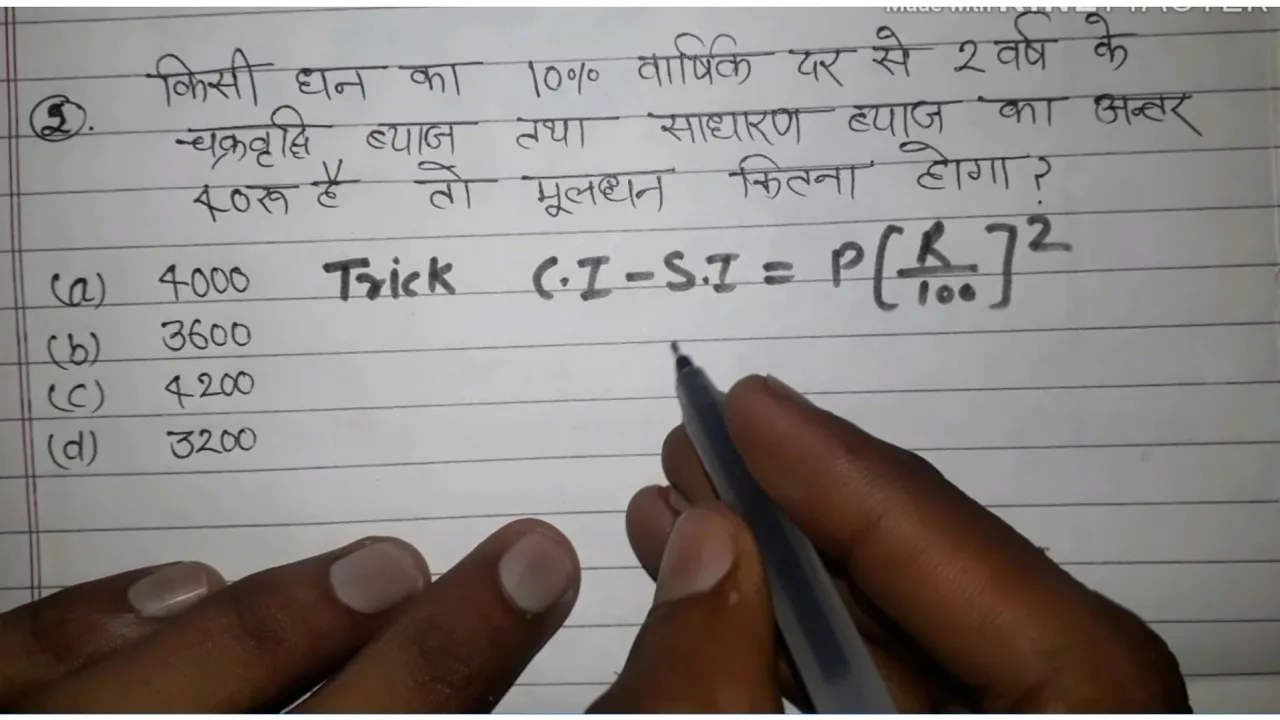 Made with KINEMASTER
किसी धन का 10% वार्षिक दर से 2 वर्ष के
2. चक्रवृद्धि ब्याज तथा साधारण ब्याज का अन्तर
40रू है तो मूलधन कितना होगा?
(a) 4000 Trick C.I - S.I = P[R/100]2
(b) 3600
(c) 4200
(d) 3200